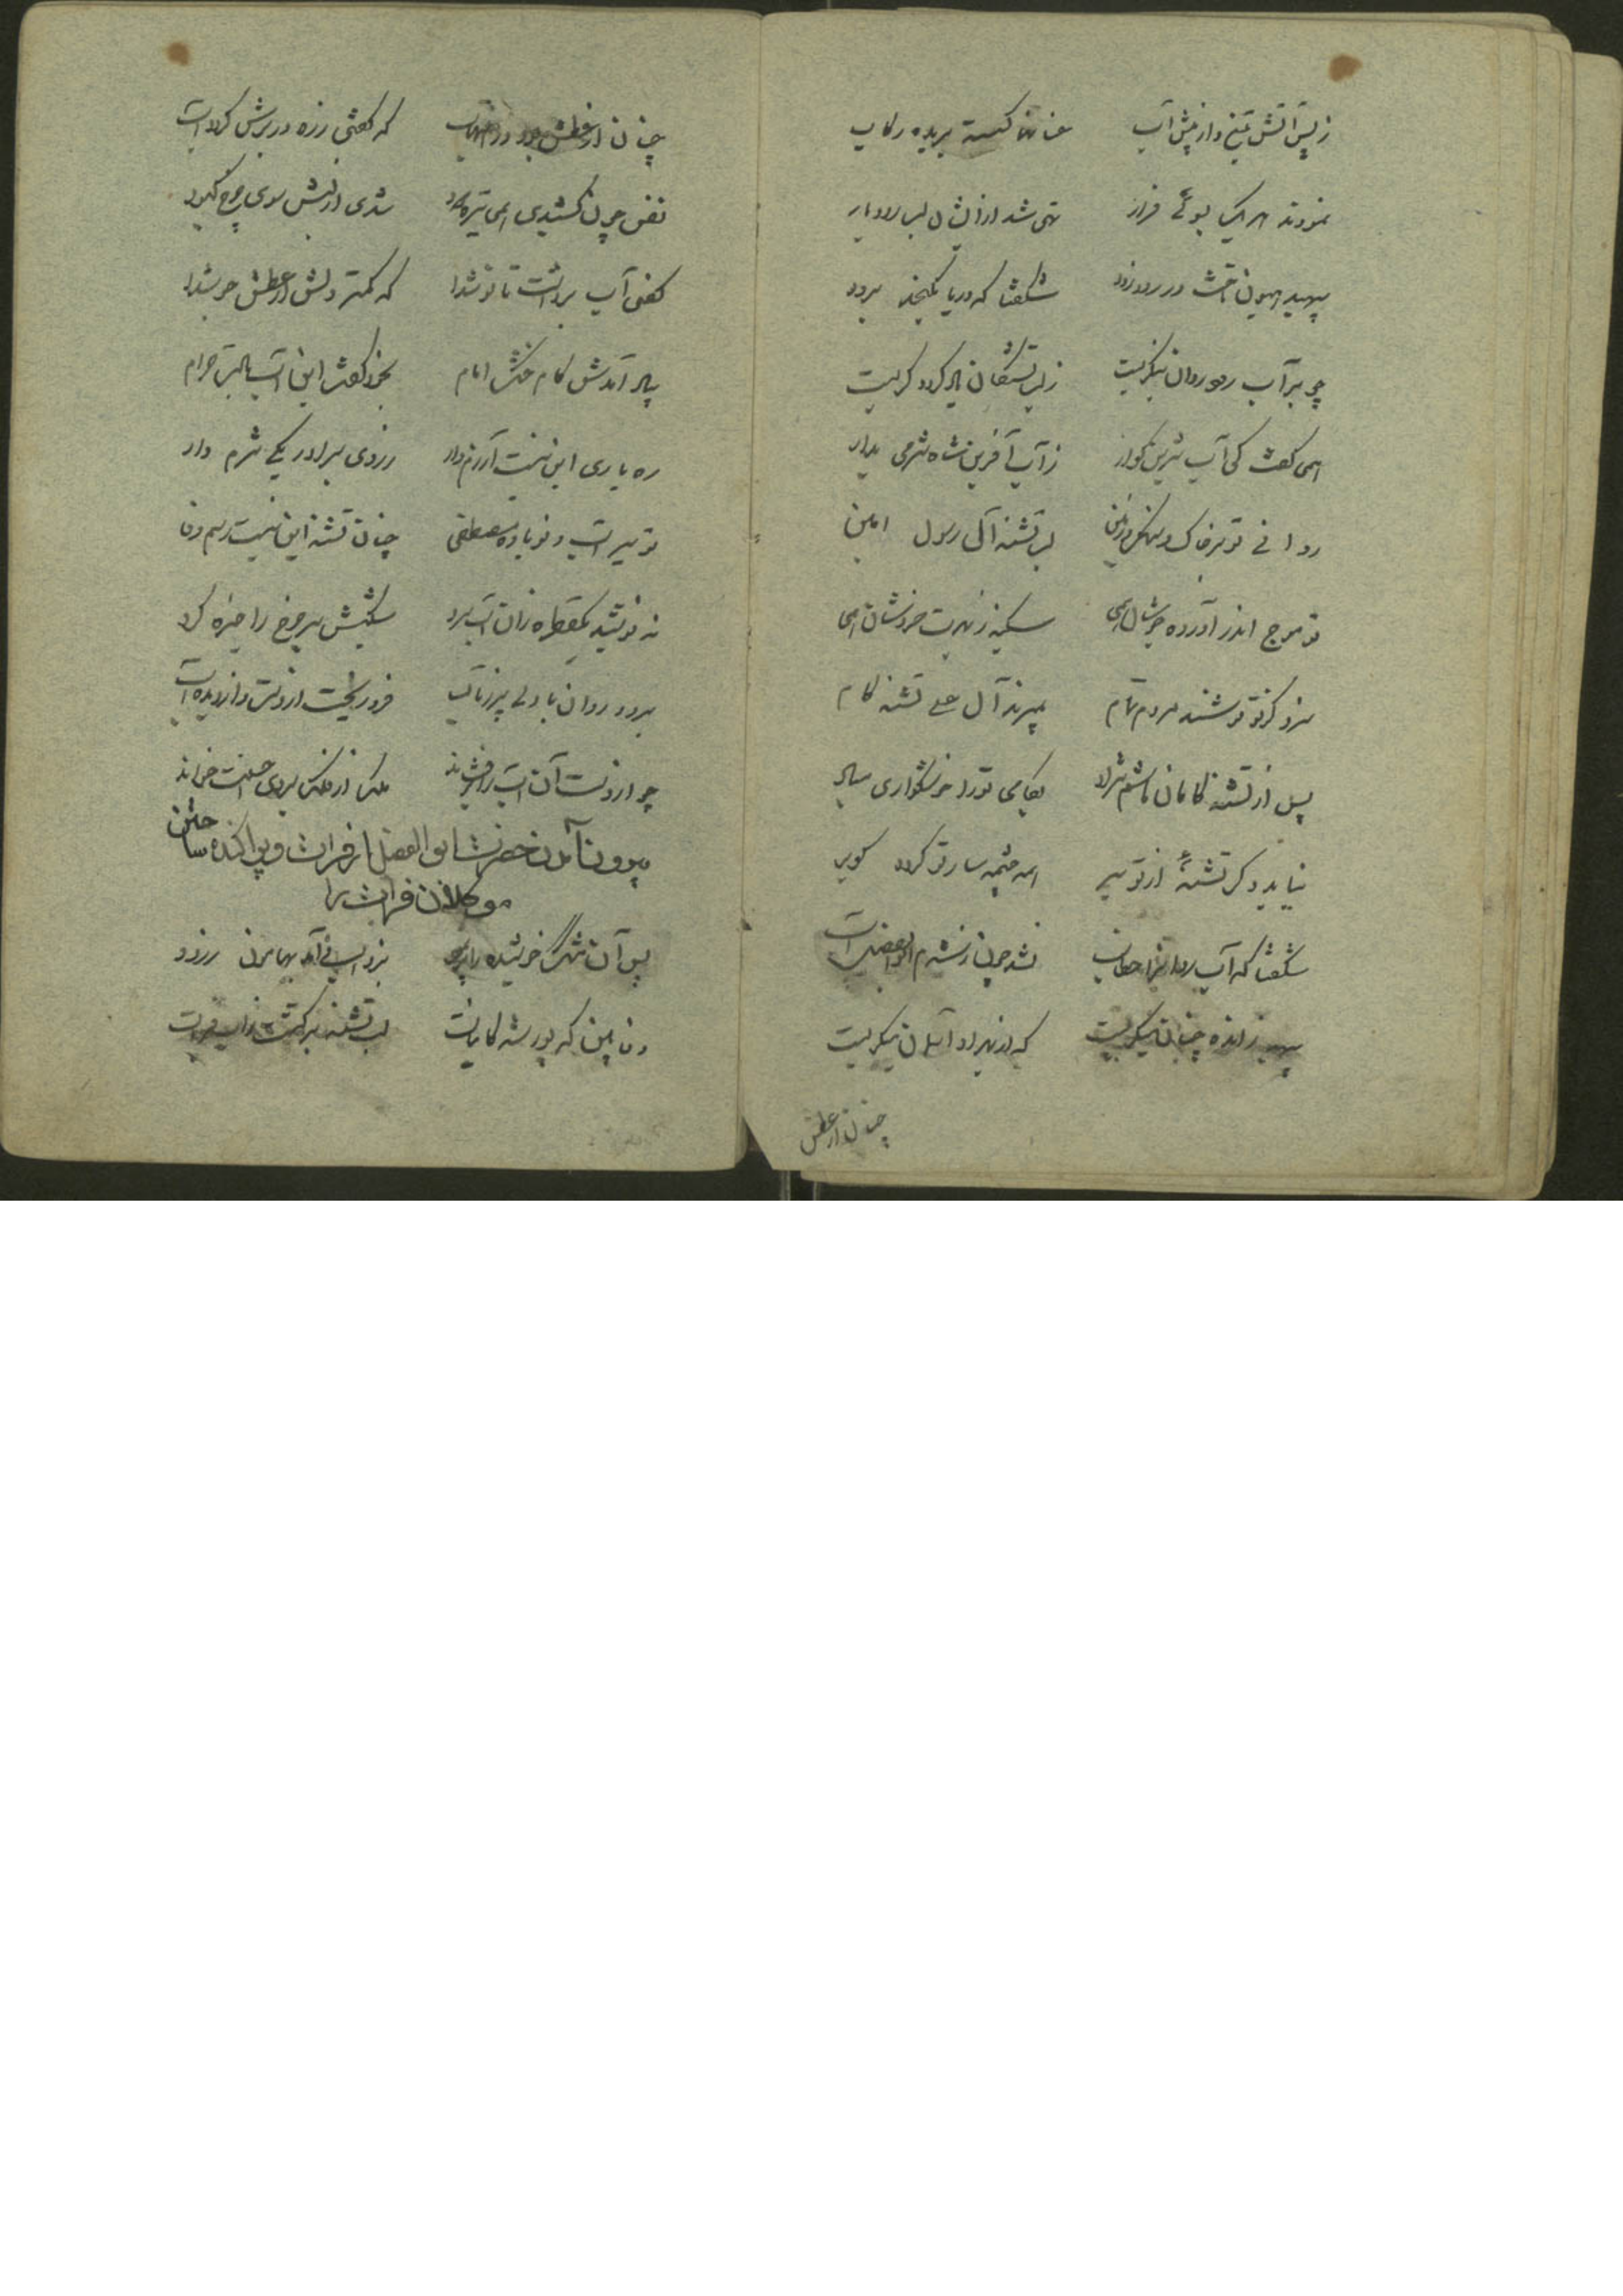 ز پس آتش تیغ و از پیش آب عنانها گسسته بریده رکاب
نمودند هر یک بسوئی فراز تهی شد از ایشان لب رودبار
سپهبد هیون تاخت در رود زود شگفتا که دریا بگنجد برود
چو بر آب رود روان بنگریست ز لب تشنگان یاد کرد و گریست
همی گفت کی آب شیرین گوار ز آب آفرین شاه شرمی بدار
روانی تو بر خاک و لب تشنه آل رسول امین
تو موج اندر آورده جوشان همی سکینه ز بهرت خروشان همی
سزد گر تو نوشند مردم تمام بمیرند آل علی تشنه کام
پس از تشنه کامان هاشم نژاد بکامی تو را خوشگواری مباد
نیاید دگر تشنهٔ از تو سیر همه چشمه سار تو گردد کویر
شگفتا که آب روان را نشد چون ز شرم ابوالفضل آب
سپهبد زمانه چنان بنگریست که از بهر او آسمان بنگریست
چنان از عطش
چنان از عطش بود در التهاب که گفتی زره در برش گرد آب
نفس چون کشیدی همی تیره دود شدی از لبش سوی چرخ کبود
کفی آب برداشت تا نوشدا که کمتر دلش از عطش جوشدا
بیاد آمدش کام خشک امام بخود گفت این آب بادت حرام
ره یاری این نیست آزرم دار ز روی برادر یکی شرم دار
تو سیراب و نوباوهٔ مصطفی چنان تشنه این نیست رسم وفا
نه نوشید یکقطره زان آب سرد شکیبش سر چرخ را خیره کرد
برود روان با دلی پر ز تاب فرو ریخت از دست و از دیده آب
چو از دست آن آب را برفشاند ملک از فلک بروی احسنت خواند
بیرون آمدن حضرت ابوالفضل از فرات و پراکنده ساختن
موکلان فرات را
پس آن مشک خوشیده را پر نمود بزد اسب و آمد بهامون ز رود
وفا بین که پور شه کاینات لب تشنه برگشت از آب فرات